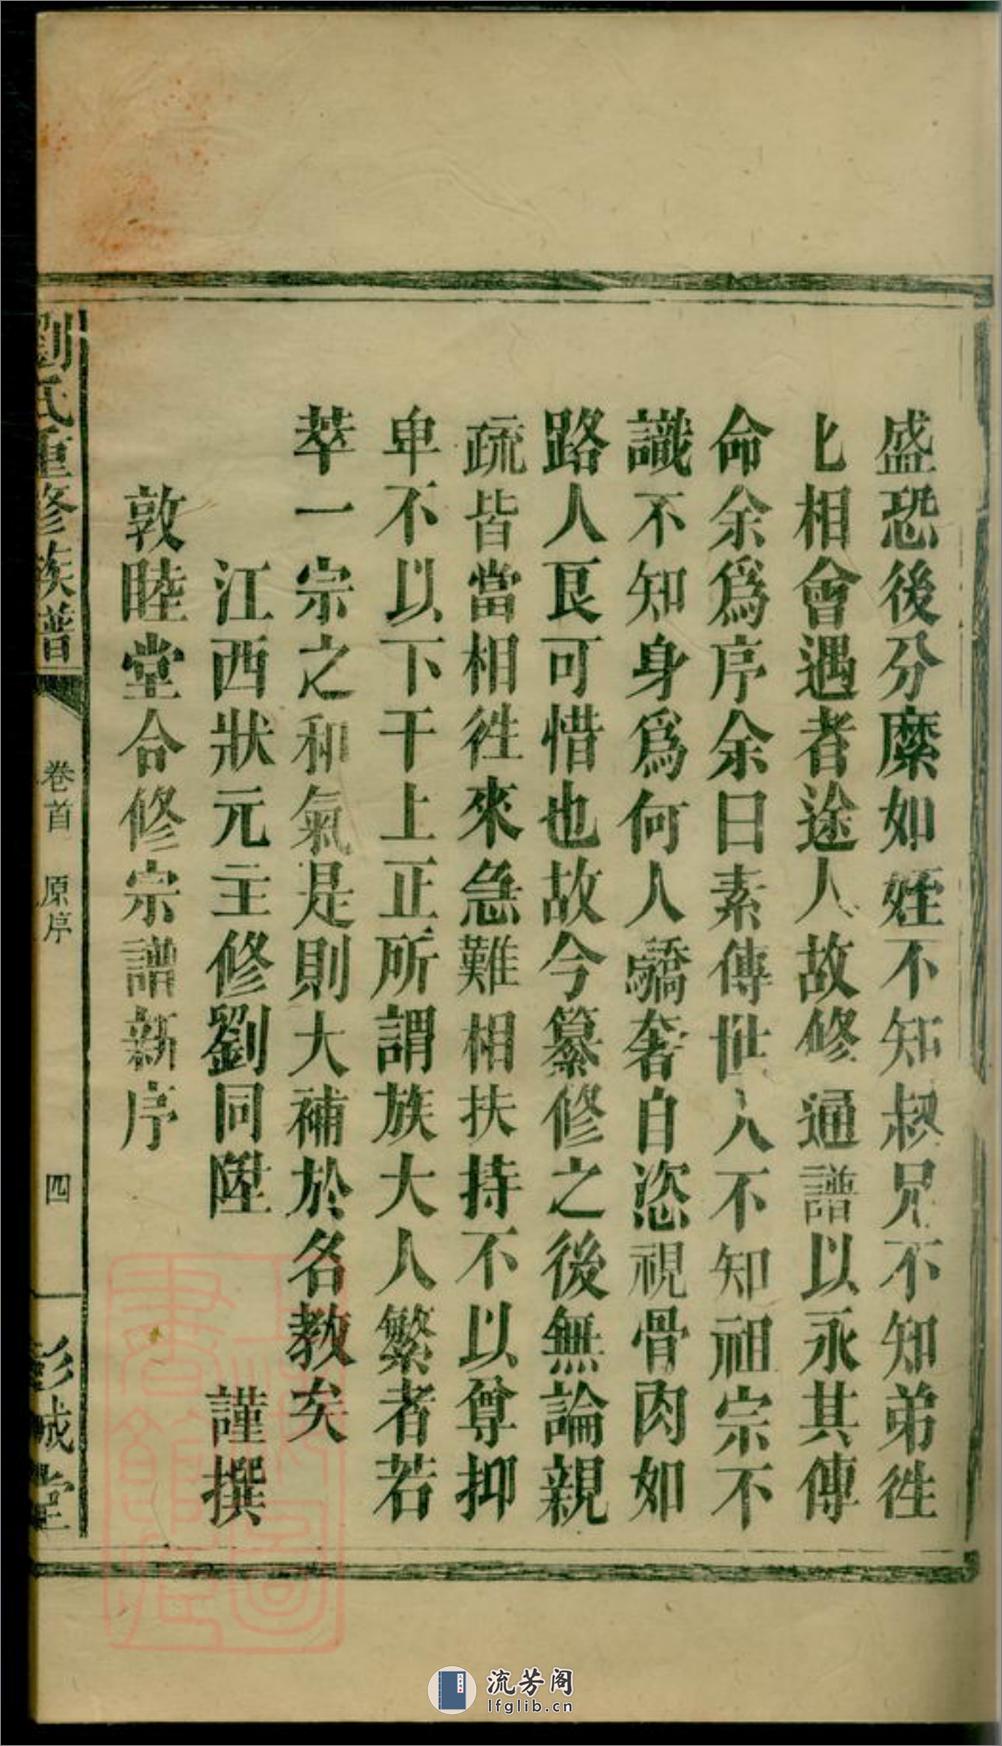 盛恐後分縻如姪不知叔兄不知弟徃
匕相會遇者途人故修通譜以永其傳
命余爲序余曰素傳世人不知祖宗不
識不知身爲何人驕奢自恣視骨肉如
路人良可惜也故今纂修之後無論親
疏皆當相徃來急難相扶持不以尊抑
卑不以下干上正所謂族大人繁者若
萃一宗之和氣是則大補於名教矣
江西狀元主修劉同陞 謹撰
敦睦堂合修宗譜新序
劉氏重修族譜 卷首 原序 四 彭城堂
流芳阁
lfglib.cn